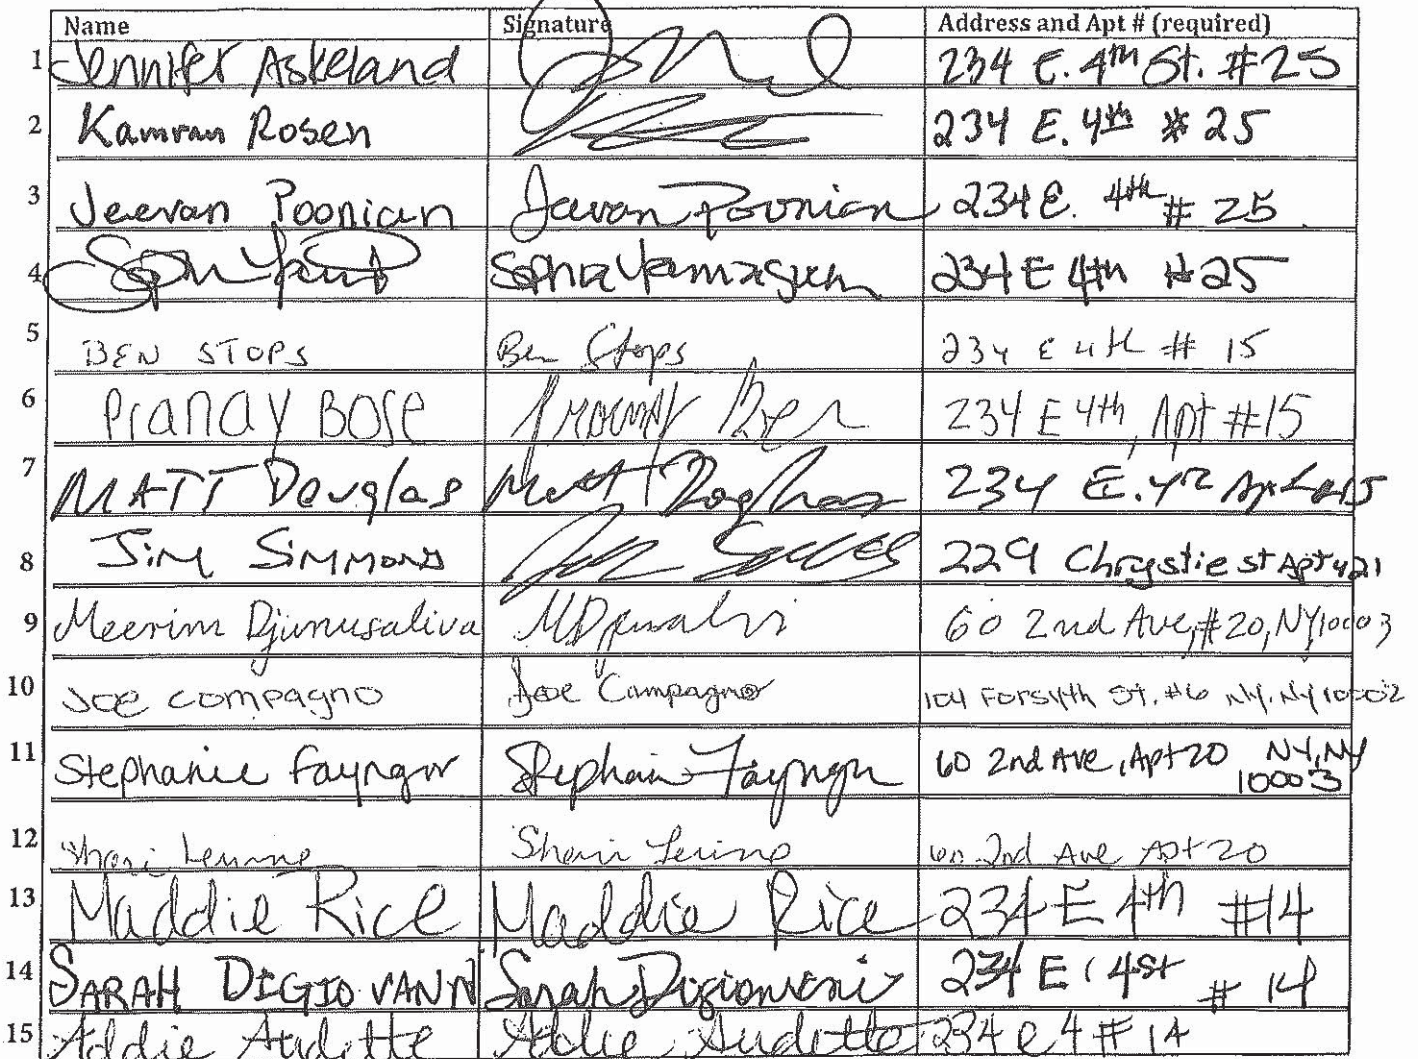 Name Signature Address and Apt # (required)
1 Jennifer Askeland 234 E. 4th St. #25
2 Kamran Rosen 234 E. 4th # 25
3 Jeevan Poonian Jeevan Poonian 234 E. 4th # 25
4 Sophia Yamaguchi 234 E 4th #25
5 BEN STOPS Ben Stops 234 E 4th # 15
6 Pranay Bose 234 E 4th, Apt #15
7 MATT Douglas Matt Douglas 234 E. 4th Apt #15
8 Jim Simmons 229 Chrystie st Apt 421
9 Meerim Djunusaliva 60 2nd Ave, #20, NY 10003
10 Joe Compagno Joe Compagno 104 Forsyth St. #6 NY, NY 10002
11 Stephanie Fayngor Stephanie Fayngor 60 2nd Ave, Apt 20 NY, NY
10003
12 Shari Levine Shari Levine 60 2nd Ave Apt 20
13 Maddie Rice Maddie Rice 234 E 4th #14
14 SARAH DIGIOVANNI Sarah Digiovanni 234 E 4st # 14
15 Addie Audette Addie Audette 234 e 4 # 14